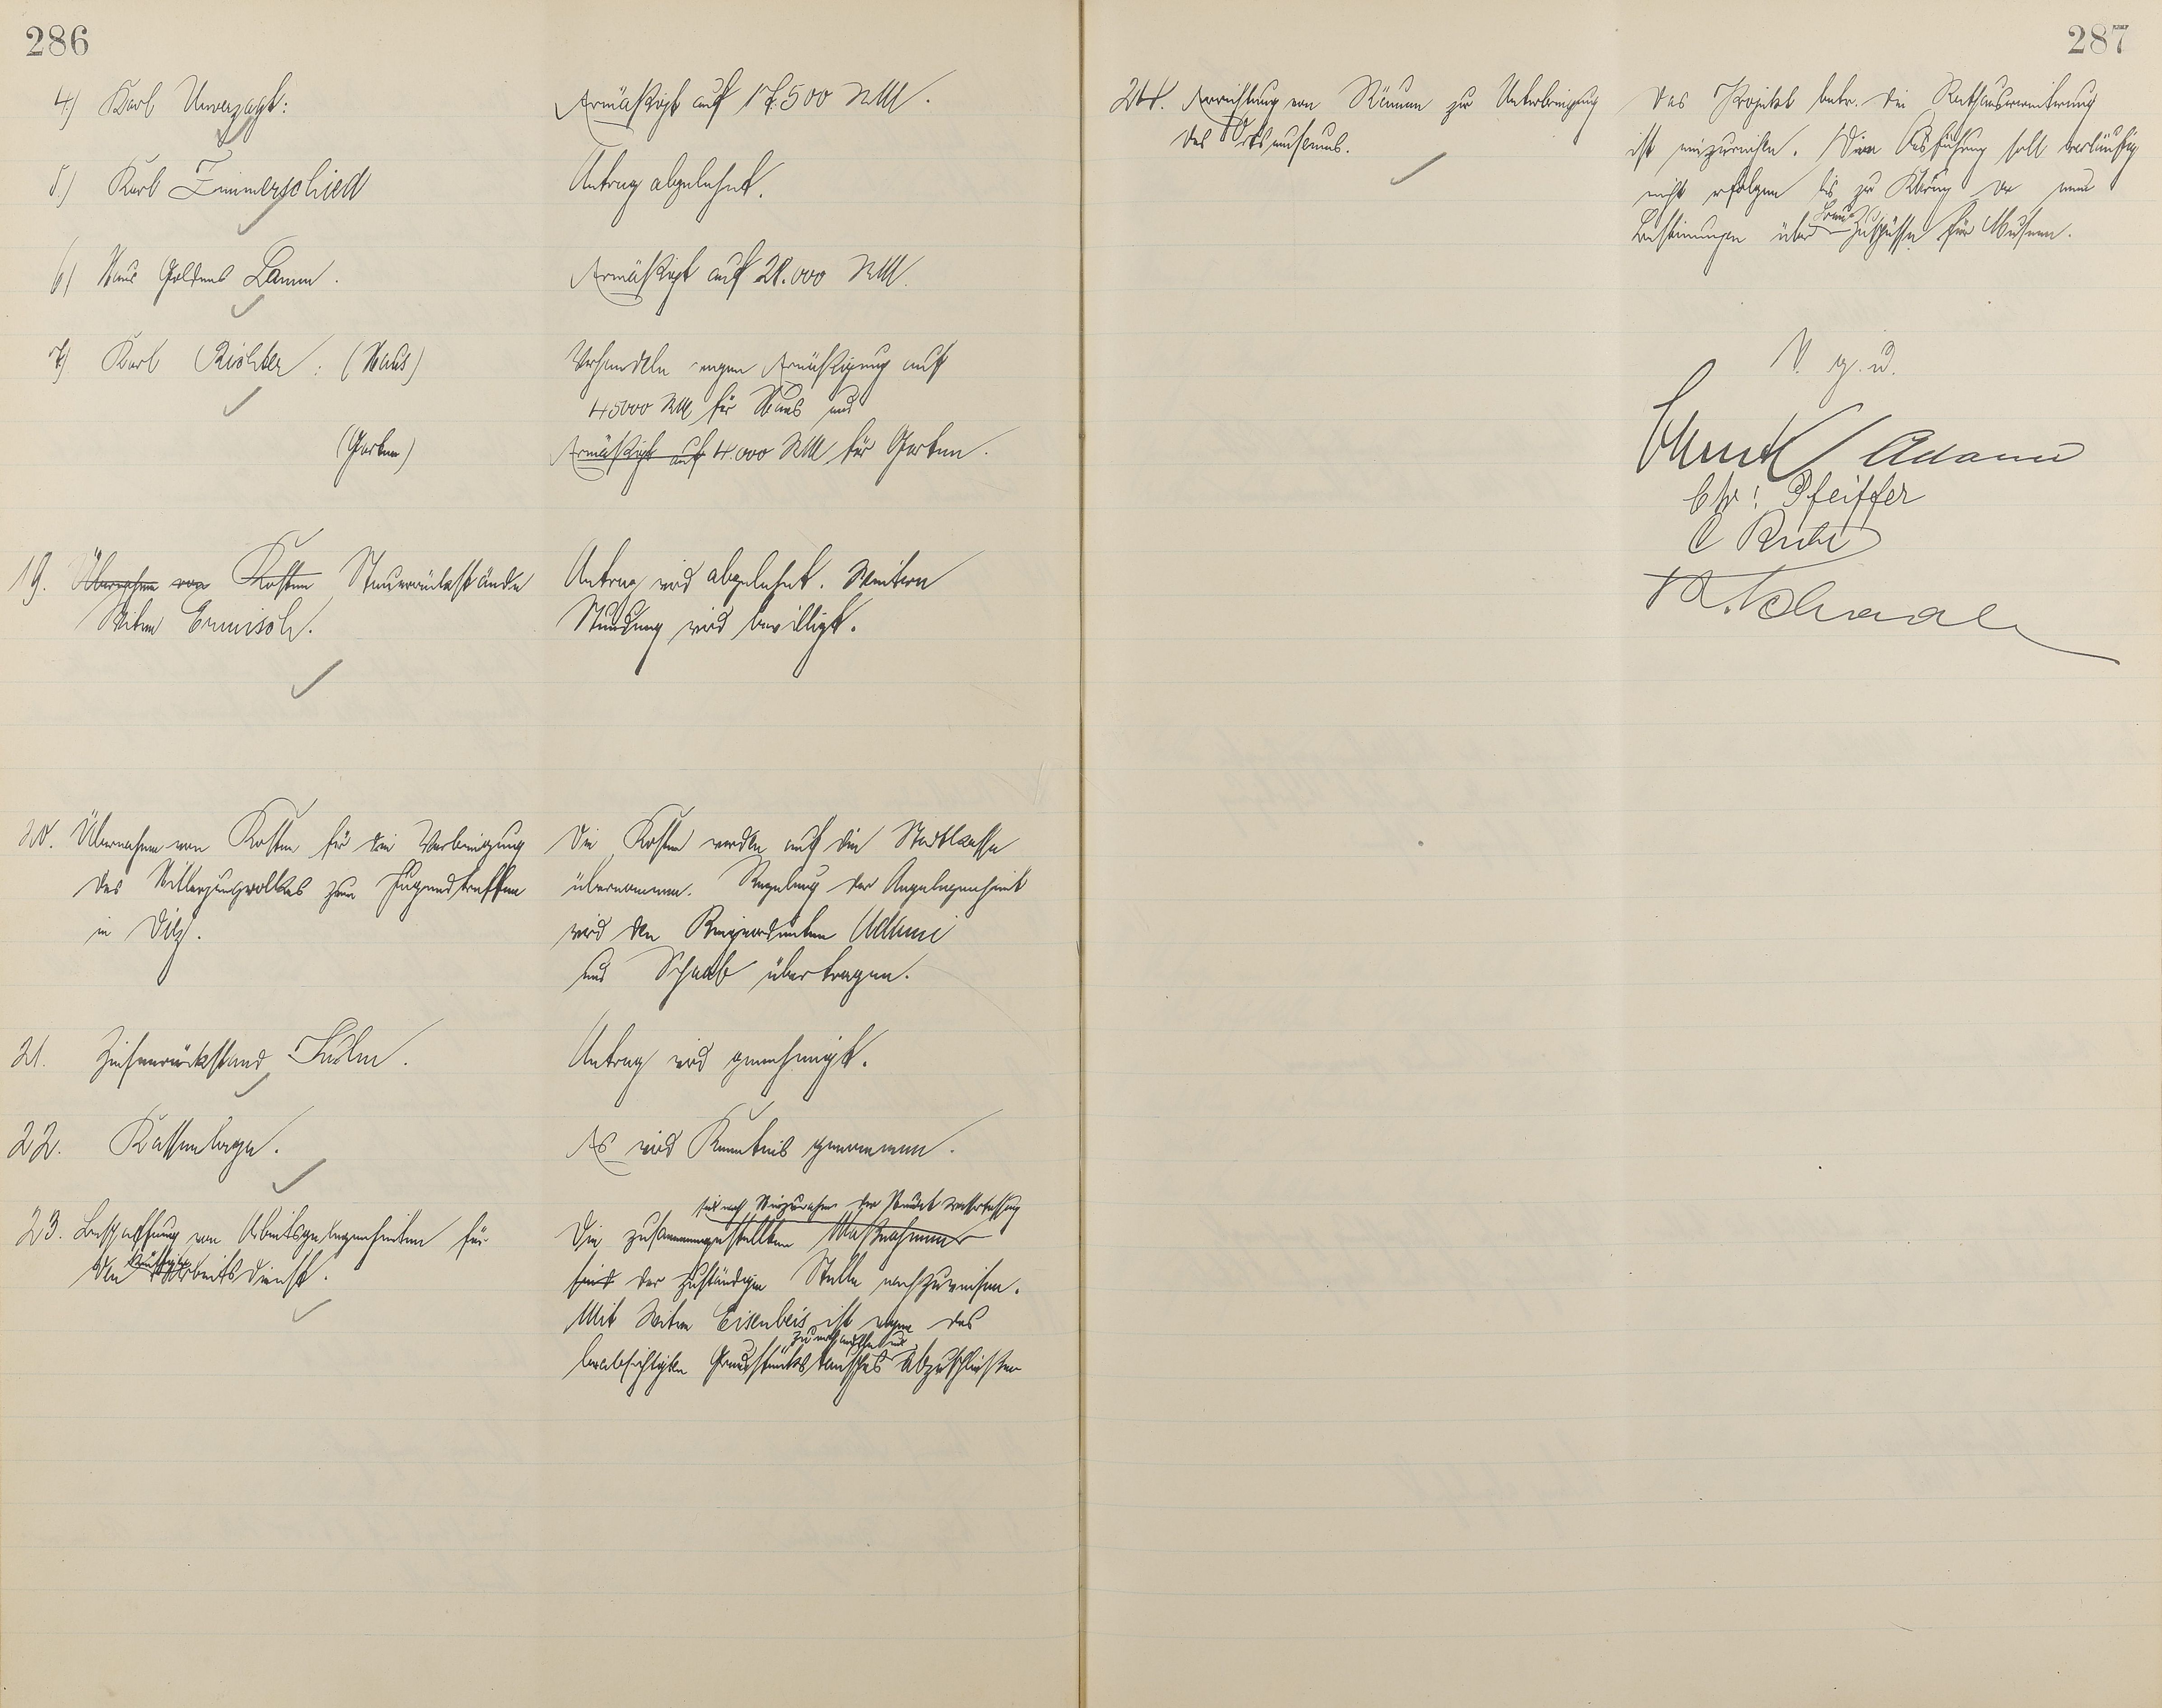 286
4.) Karl Unverzagt:
Ermäßigt auf 17.500 RM.
5.) Karl Zimmerschied
Antrag abgelehnt.
6.) Haus Goldenes Lamm.
Ermäßigt auf 28.000 RM.
7.) Karl Richter: (Haus)
Verhandeln wegen Ermäßigung auf
45000 RM für Haus und
(Garten)
Ermäßigt auf 4.000 RM für Garten.
19. Übernahme von Kosten Steuerrückstände
Witwe Ermisch.
Antrag wird abgelehnt. Weitere
Stundung wird bewilligt.
20. Übernahme von Kosten für die Verbringung
des Hitlerjungvolkes zum Jugendtreffen
in Diez.
Die Kosten werden auf die Stadtkasse
übernommen. Regelung der Angelegenheit
wird den Beigeordneten Adami
und Schaab übertragen.
21. Zinsenrückstand
Antrag wird genehmigt.
22. Kassenlage.
Es wird Kenntnis genommen.
23. Beschaffung von Arbeitsgelegenheiten für
den Arbeitsdienst.
sind nach der
Die zusammengestellten Maßnahmen
sind der zuständigen Stelle nachzuweisen.
Mit Witwe Eisenbeis ist wegen des
beabsichtigten Grundstückstausches abzuschließen
287
24. Errichtung von Räumen zur Unterbringung
des Ortsmuseums.
Das Projekt betr. die Rathauserweiterung
ist einzureichen. Die Ausführung soll vorläufig
nicht erfolgen bis zur Klärung der neuen
Bestimmungen über Zuschüsse für Museen.
V. g. u.
Adami
Chr: Pfeiffer
K. Schaab